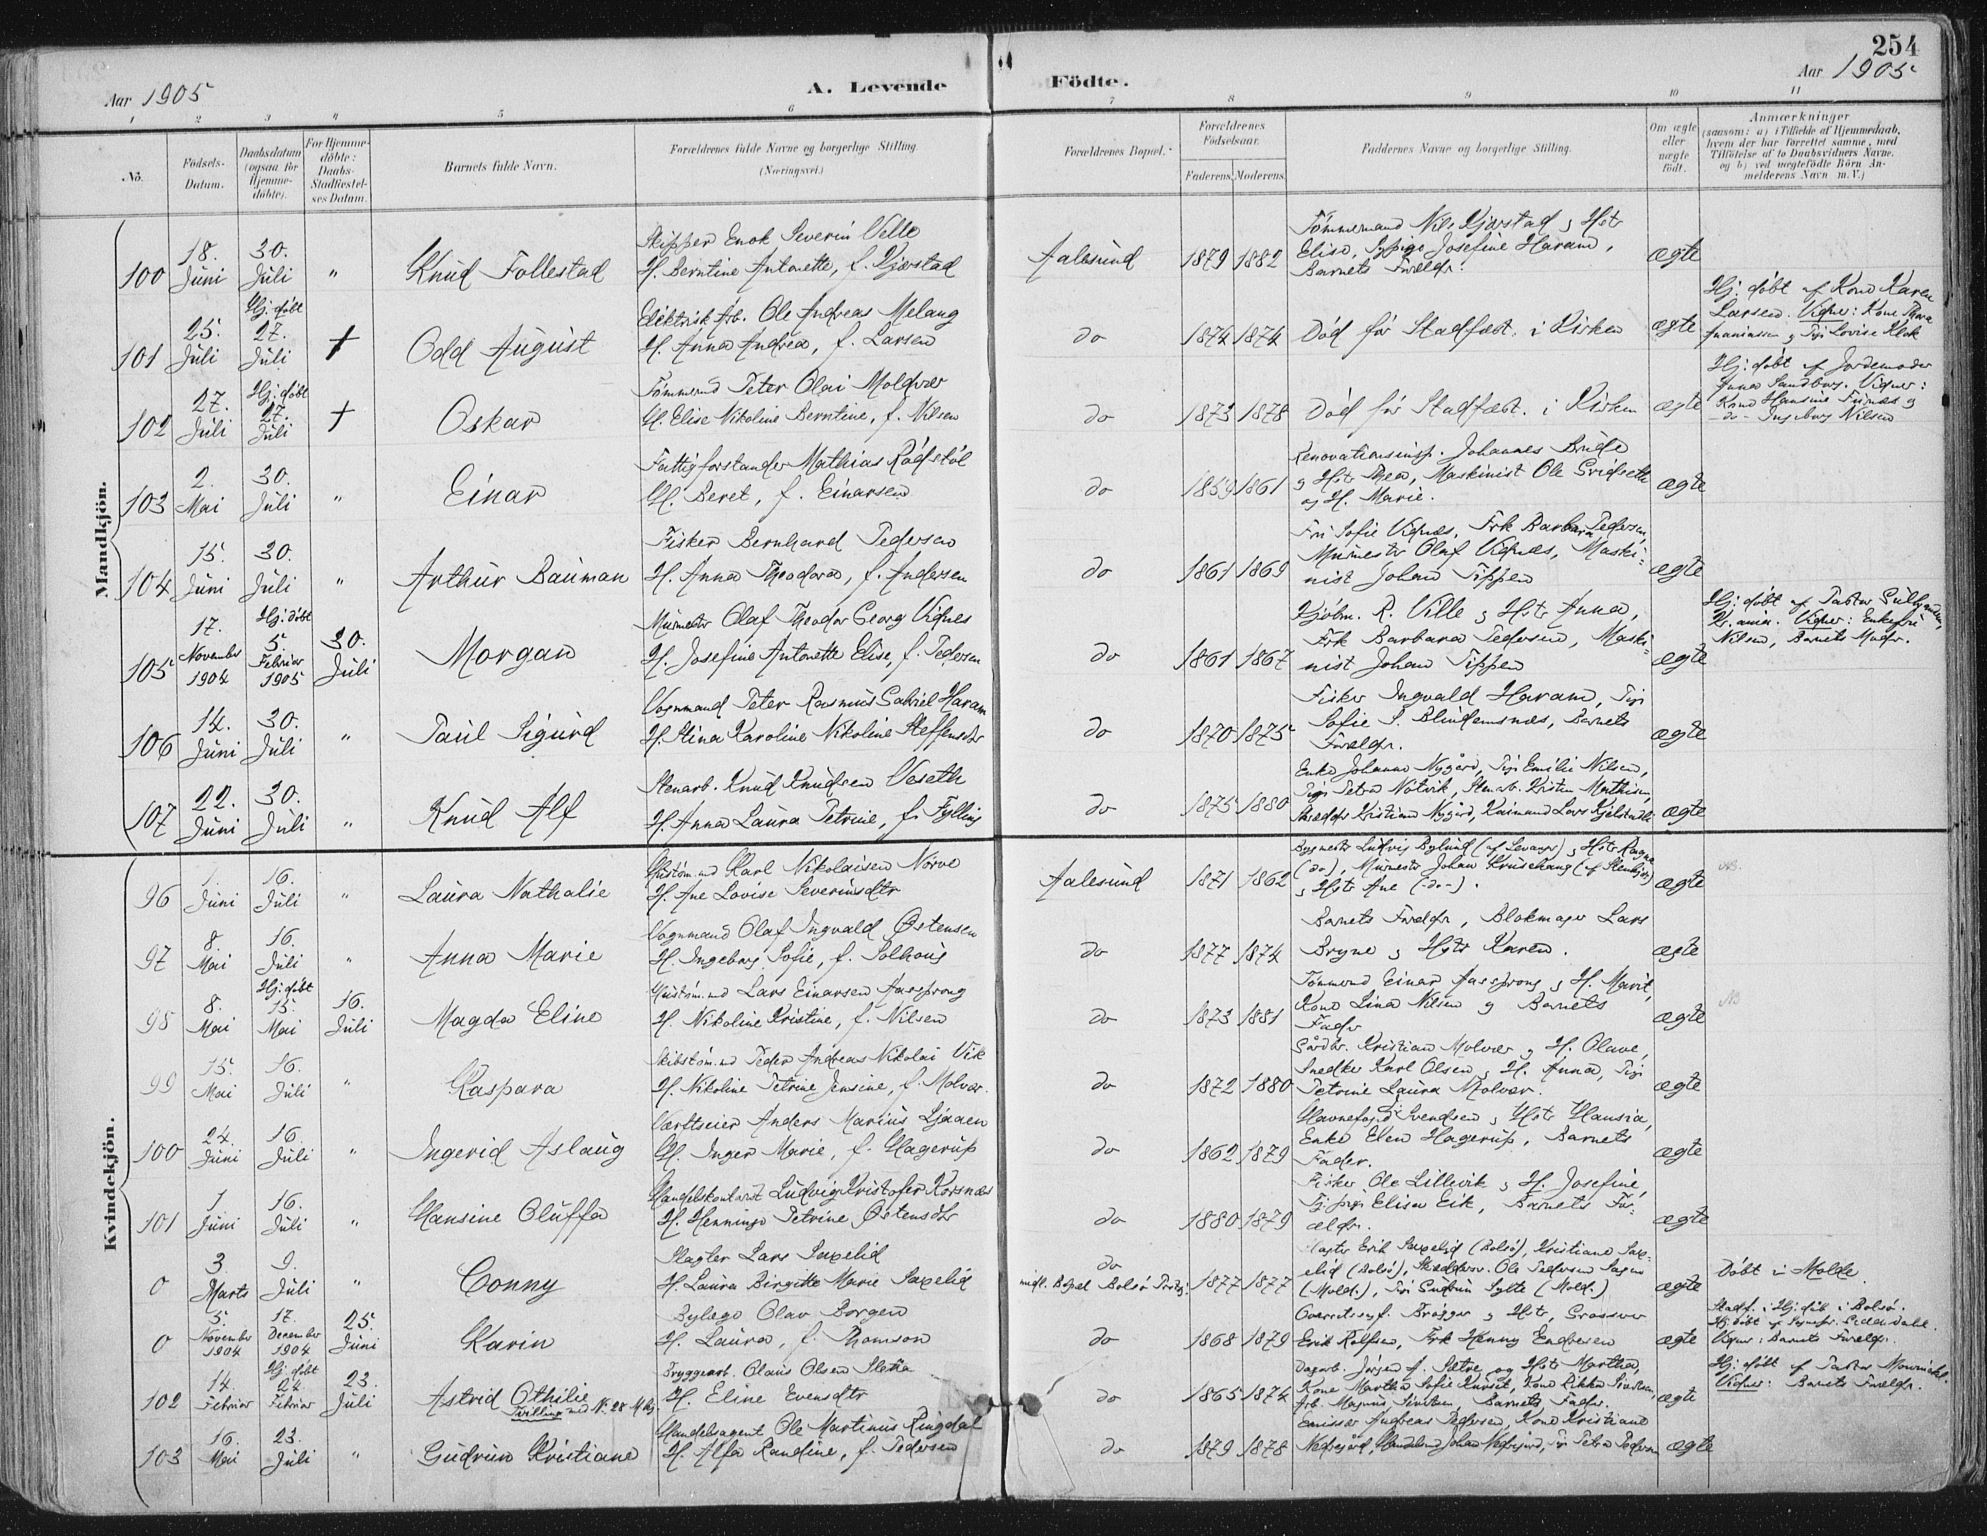 254
Aar 1905
A. Levende Födte.
Aar 1905
1 2 3 4 5 6 7 8 9 10 11
No. Födsels-Datum. Daabsdatum (ogsaa för Hjemme-döbte). For Hjemme-döbte: Daabs-Stadfæstel-ses Datum. Barnets fulde Navn. Forældrenes fulde Navne og borgerlige Stilling. (Næringsvei.) Forældrenes Bopæl. Forældrenes Födselsaar. Faderens. Moderens. Faddernes Navne og borgerlige Stilling. Om ægte eller uægte födt. Anmærkninger (saasom: a) i Tilfælde af Hjemmedaab, hvem der har forrettet samme, med Tilföielse af to Daabsvidners Navne, og b) ved uægtefödte Börn Anmelderens Navn m. V.)
Mandkjön.
100 18. Juni 30. Juli " Knud Follestad Skipper Enok Severin Velle
H. Berntine Antonette, f. Kjærstad Aalesund 1879 1882 Tömmermand Nils Kjærstad & Hstr
Elise, Sypige Josefine Haram,
Barnets Forældr. ægte
101 25. Juli Hj: döbt 27. Juli + Odd August Elektrisk Arb. Ole Andreas Melang
H. Anna Andrea, f. Larsen do 1874 1874 Död för Stadfæst. i Kirken ægte Hj: döbt af Kone Karen
Larsen. Vidner: Kone Thora
& Pige Lovise Klok
102 27. Juli Hj: döbt 27. Juli + Oskar Tömmermd Peter Olai Moldvær
H. Elise Nikoline Berntine, f. Nilsen do 1873 1878 Död för Stadfæst. i Kirken ægte Hj: döbt af Jordemoder
Anna Sandborg. Vidner:
Kone Hansine Furnæs &
do Ingeborg Nilsen
103 2. Mai 30. Juli " Einar Fattigforstander Mathias Rödstöl
H. Beret, f. Einarsen do 1859 1861 Renovationsinsp. Johannes Brude
& Hstr Thea, Maskinist Ole
og H. Marie. ægte
104 15. Juni 30. Juli " Arthur Bauman Fisker Bernhard Pedersen
H. Anna Theodora, f. Andersen do 1861 1869 Fru Sofie Vignæs, Frk Barbara Pedersen,
Murmester Olaf Vignæs, Maski-
nist Johan Tippen ægte
105 17. November 1904 Hj: döbt 5. Februar 1905 30. Juli Morgan Murmester Olaf Theodor Georg Vignes
H. Josefine Antonette Elise, f. Pedersen do 1861 1867 Kjöbm. R. Ville & Hstr Anna,
Frk Barbara Pedersen, Maski-
nist Johan Tippen ægte Hj: döbt af Pastor
Vidner: Enkefru
Nilsen, Barnets Modr.
106 14. Juni 30. Juli " Paul Sigurd Vognmand Peter Rasmus Gabriel Haram
H. Stina Karoline Nikoline Steffensdtr do 1870 1875 Fisker Ingvald Haram, Pige
Sofie S. Blindemsnæs, Barnets
Forældr. ægte
107 22. Juni 30. Juli " Knud Alf Stenarb. Knud Knudsen Veseth
H. Anna Laura Petrine, f. Fylling do 1875 1880 Enke Johanne Nygård, Pige Emilie Nilsen,
Pige Petra Notvik, Stenarb. Kristen Mathisen,
Skrædder Kristian Nygård, Lars ægte
Kvindekjön.
96 1. Juni 16. Juli " Laura Nathalie Hustöm.md Karl Nikolaisen Norve
H. Ane Lovise Severinsdtr Aalesund 1871 1862 Bygmester Ludvig Bylund (af Levanger) & Hstr Ragna
(do), Murmester Johan (af Stenkjær)
& Hstr Ane (-do-). ægte NB.
97 8. Mai 16. Juli " Anna Marie Vognmand Olaf Ingvald Östensen
H. Ingeborg Sofie, f. Solhaug do 1877 1874 Barnets Forældr, Blokmager Lars
Bryne & Hstr Karen. ægte
98 8. Mai Hj: döbt 15. Mai 16. Juli Magda Eline Hustöm.md Lars Einarsen Aarsprong
H. Nikoline Kristine, f. Nilsen do 1873 1881 Tömmermd Einar Aarsprong & H. Marit,
Kone Lina Nilsen og Barnets
Fader ægte NB
99 15. Mai 16. Juli " Kaspara Skibstöm.md Peder Andreas Nikolai Vik
H. Nikoline Petrine Jensine, f. Molvær. do 1872 1880 Gårdbr. Kristian Molvær & H. Olave,
Snedker Karl Olsen & H. Anna, Pige
Petrine Laura Molvær. ægte
100 24. Juni 16. Juli " Ingerid Aslaug Værtseier Anders Marius Ljaaen
H. Inger Marie, f. Hagerup do 1862 1879 Havnefogd Svendsen & Hstr Hansia,
Enke Elen Hagerup, Barnets
Fader. ægte
101 1. Juni 16. Juli " Hansine Oluffa Handelskontorist Ludvig Kristofer Korsnæs
H. Henninge Petrine Östensdtr do 1880 1879 Fisker Ole Lillevik & H. Josefine,
Sypige Elisa Eik, Barnets For-
ældr. ægte
0 3. Marts 9. Juli " Conny Slagter Lars Saxelid
H. Laura Birgitte Marie Saxelid do
midl. Bopæl Bolsö Prstgj. 1877 1877 Slagter Erik Saxelid (Bolsö), Kristiane Sax-
elid (Bolsö), Ole Pedersen
(Molde), Fru Gudrun Sylte (Molde) ægte Döbt i Molde.
0 5. November 1904 17. December 1904 25. Juni Karin Bylæge Olav Borgen
H. Laura, f. Thomson do 1868 1879 Overretssagf. Brögger & Hst, Grosserer
Erik Rolfsen, Frk Henny Endresen ægte Stadf. i Hj: döb i Bolsö.
Hj: döbt af
Vidner: Barnets Forældr.
102 14. Februar Hj: döbt 24. Februar 23. Juli Astrid Othilie
Tvilling med N. 28 Bryggearb. Olaus Olsen Sletta
H. Eline Evensdtr do 1865 1874 Dagarb. Jörgen J. Sætre og Hstr Martha,
Kone Martha Sofie Kurset, Kone Rikka
Arb. Magnus Barnets Fader. ægte Hj: döbt af Pastor
Vidner: Barnets Forældr.
103 16. Mai 23. Juli " Gudrun Kristiane Handelsagent Ole Martinus Ringdal
H. Alfa Randine, f. Pedersen do 1879 1878 Emissær Andreas Pedersen, Kone Kristiane
Nedregård, Johan Nedregård, Pige Petra Pedersen ægte